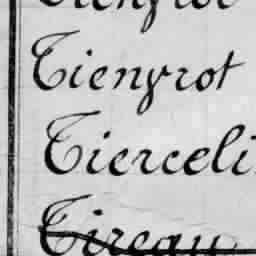 Tienyrot
Tierceli
Tireau